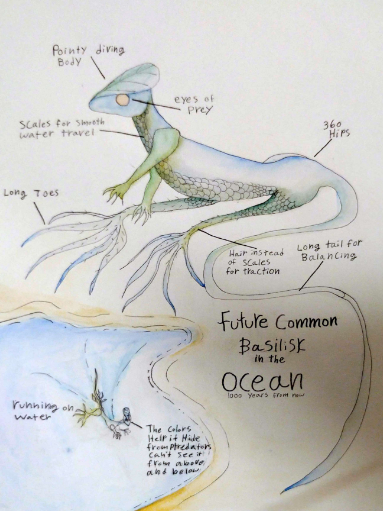 Pointy diving
Body
eyes of
Prey
Scales for smooth
water travel
360
Hips
Long Toes
Hair instead
of scales
for traction
Long tail for
Balancing
Future Common
Basilisk
in the
Ocean
1000 years from now
running on
water
The Colors
Help it Hide
from Predators
Can't see it
from above
and below